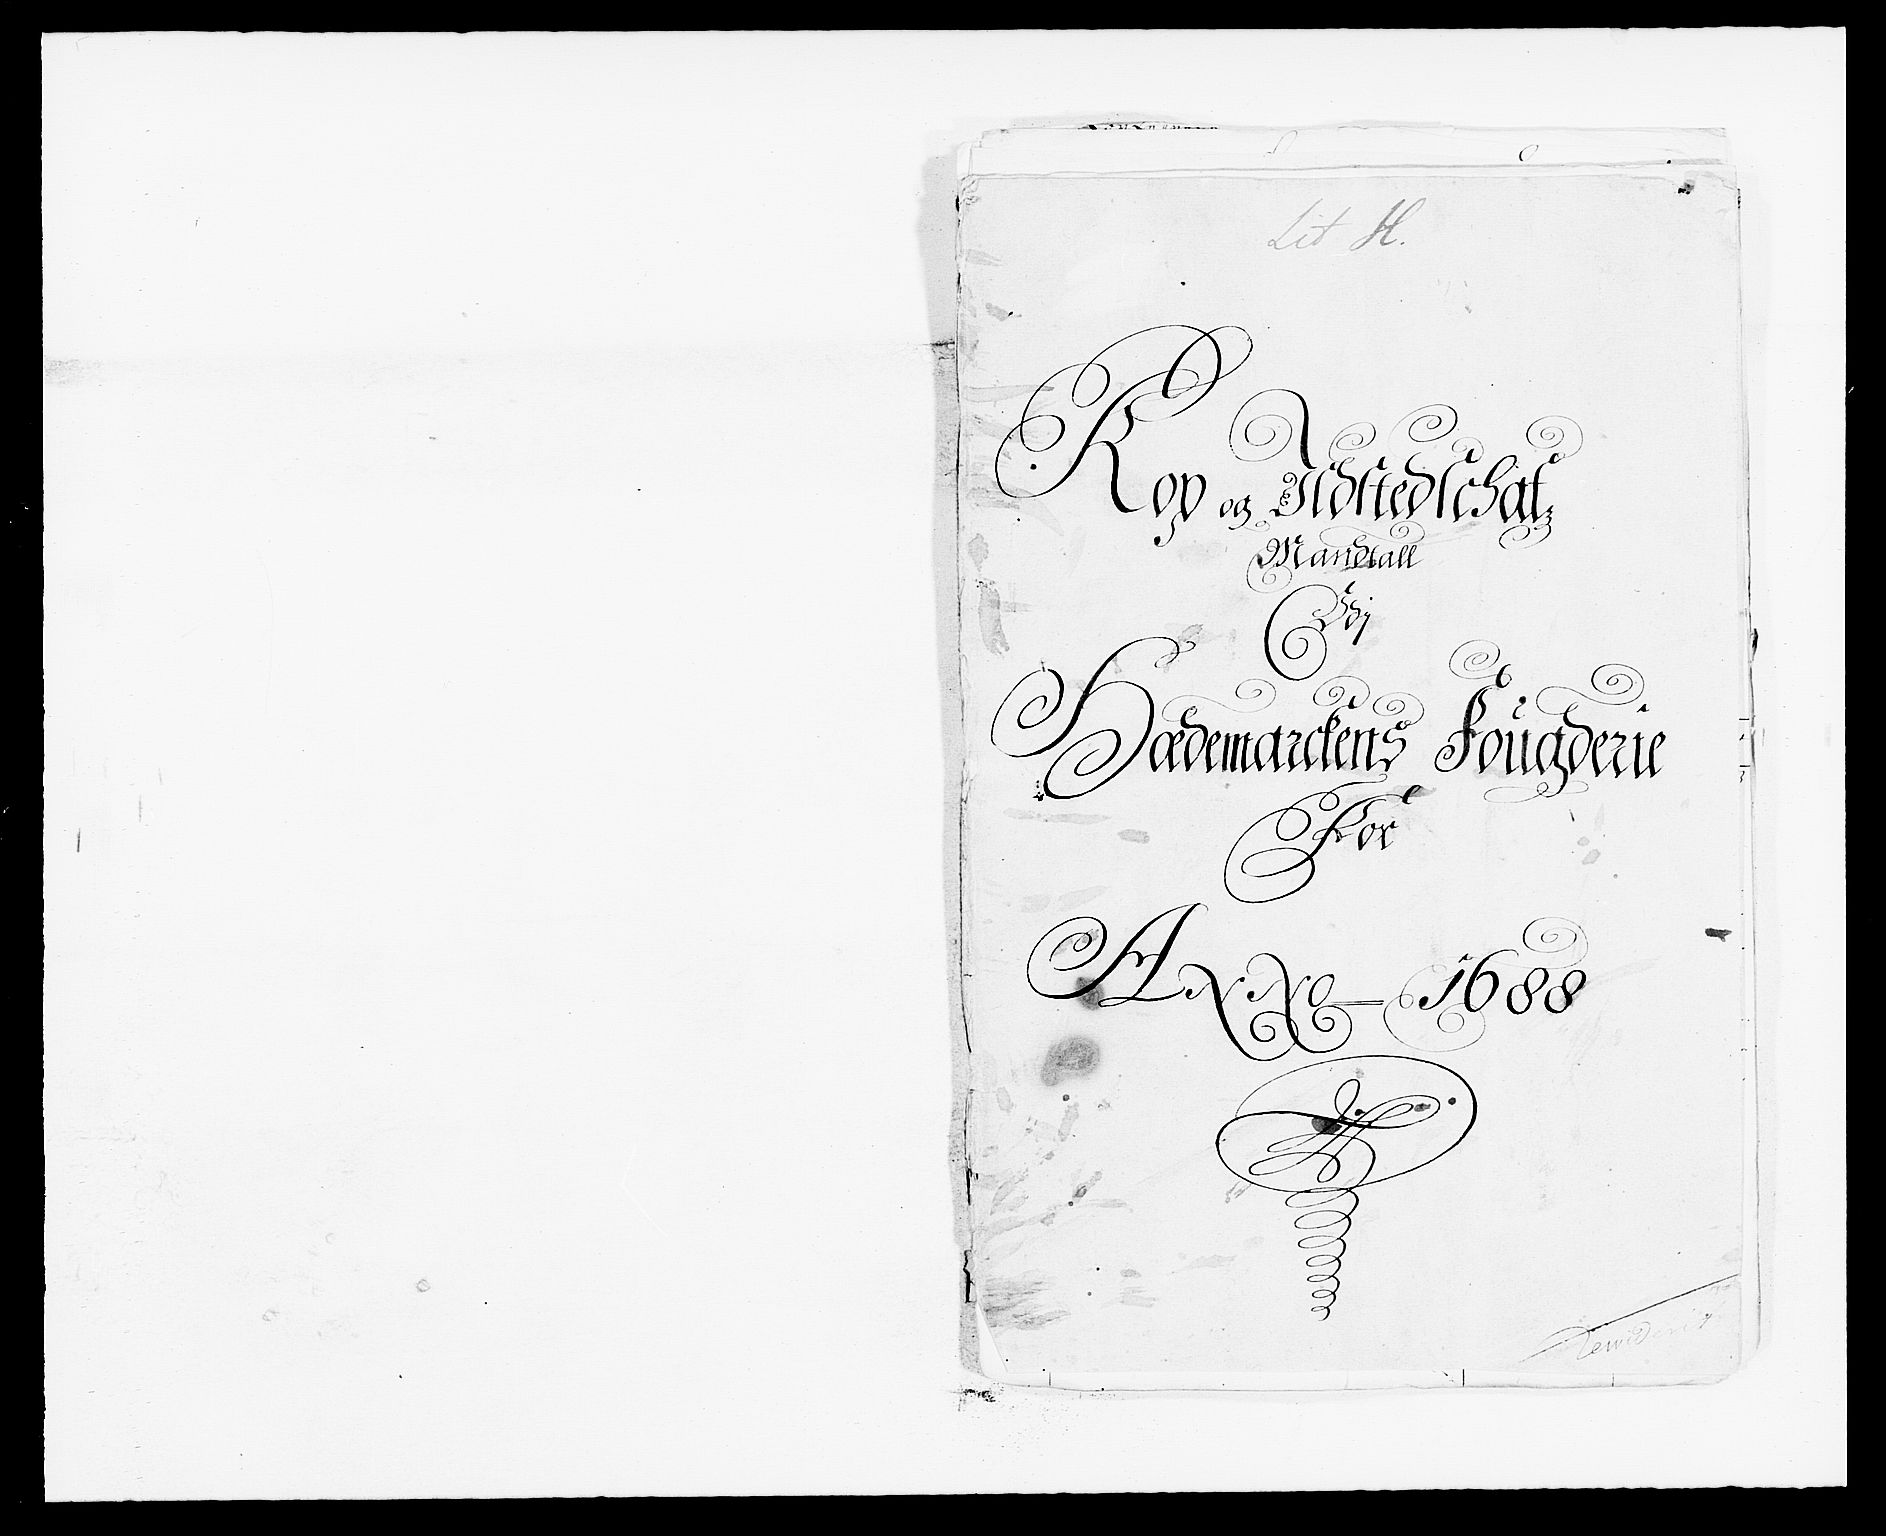 Lit H.
Kop og Ildstedschatz
Mandtall
Hædemarckens Fougderie
For
Anno 1688